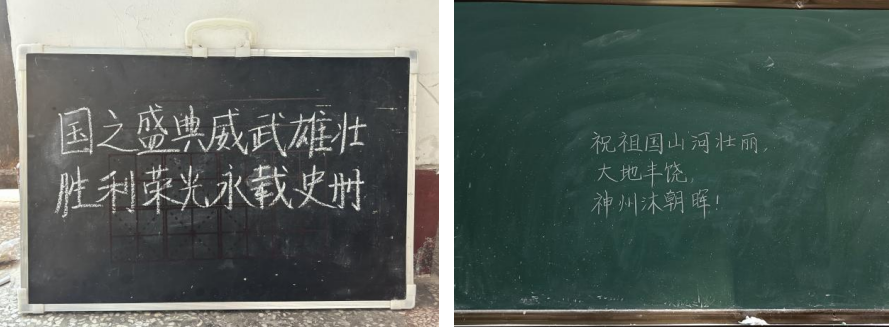 国之盛典威武雄壮
胜利荣光永载史册
祝祖国山河壮丽,
大地丰饶,
神州沐朝晖!